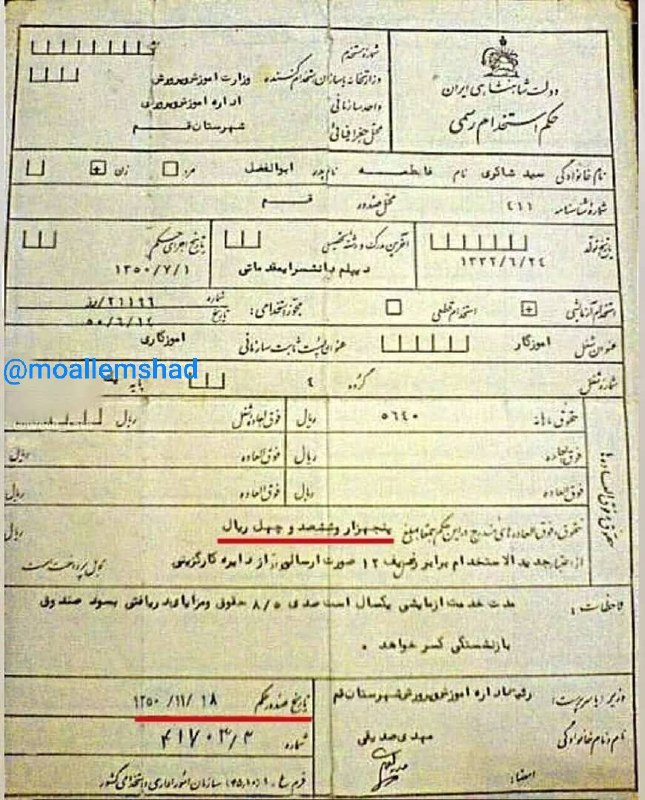 دولت شاهنشاهی ایران
حکم استخدام رسمی
شماره مستخدم
وزارتخانه یا سازمان استخدام کننده وزارت آموزش و پرورش
واحد سازمانی اداره آموزش و پرورش
محل جغرافیائی شهرستان قم
نام خانوادگی سید شاکری نام فاطمه نام پدر ابوالفضل مرد زن +
شماره شناسنامه ۴۱۱ محل صدور قم
تاریخ تولد ۱۳۳۲/۶/۲۴
آخرین مدرک و رشته تحصیلی دیپلم دانشسرایمقدماتی
تاریخ اجرای حکم ۱۳۵۰/۷/۱
استخدام آزمایشی + استخدام قطعی مجوز استخدامی: شماره ۲۱۱۹۶/رز
تاریخ ۵۰/۶/۱۴
عنوان شغل آموزگار عنوان پست ثابت سازمانی آموزگاری
@moallemshad
شماره شغل گروه ۴ پایه
حقوق و فوق العاده ها
حقوق ماهانه ۵۶۴۰ ریال فوق العاده شغل ریال
فوق العاده ریال فوق العاده ریال
فوق العاده ریال فوق العاده ریال
حقوق و فوق العاده های مندرج در این حکم جمعا بمبلغ پنجهزار وششصد و چهل ریال
از اعتبار جدید الاستخدام برابر ردیف ۱۲ صورت ارسالی از دایره کارگزینی قابل پرداخت است
ملاحظات: مدت خدمت آزمایشی یکسال است صدی ۸/۵ حقوق ومزایای دریافتی بسود صندوق
بازنشستگی کسر خواهد .
وزیر یا سرپرست: رئیس اداره آموزش و پرورش شهرستان قم
نام و نام خانوادگی مهدی صدیقی
امضاء:
تاریخ صدور حکم ۱۳۵۰/۱۱/۱۸
شماره ۴۱۷۰۳/۳
سازمان امور اداری و استخدامی کشور